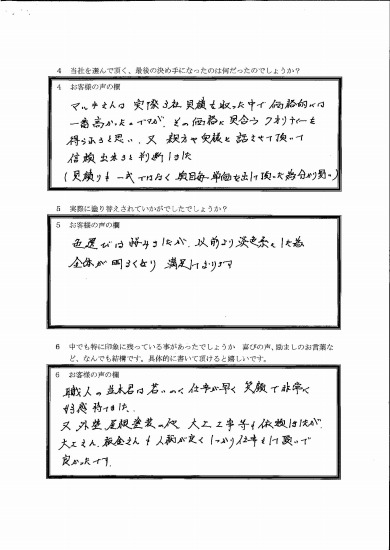 4 当社を選んで頂く、最後の決め手になったのは何だったのでしょうか?
4 お客様の声の欄
マルチさんは 実際3社見積を取った中で 価格的には
一番高かったのですが、その価格に見合うクオリティーを
得られると思い、又 親方や奥様と話させて頂いて
信頼出来ると判断しました
(見積りも一式ではなく 数目毎 単価を出して頂いた為分かり易い)
5 実際に塗り替えされていかがでしたでしょうか?
5 お客様の声の欄
色選びは 悩みましたが、以前より淡色系とした為
全体が明るくなり 満足しております
6 中でも特に印象に残っている事があったでしょうか 喜びの声、励ましのお言葉な
ど、なんでも結構です。具体的に書いて頂けると嬉しいです。
6 お客様の声の欄
職人の並木君は若いのに 仕事が早く 笑顔で非常に
好感持てました。
又 外壁 屋根塗装の他 大工工事等も依頼しましたが、
大工さん、板金さんも 人柄が良く しっかり仕事をして頂いて
良かったです。